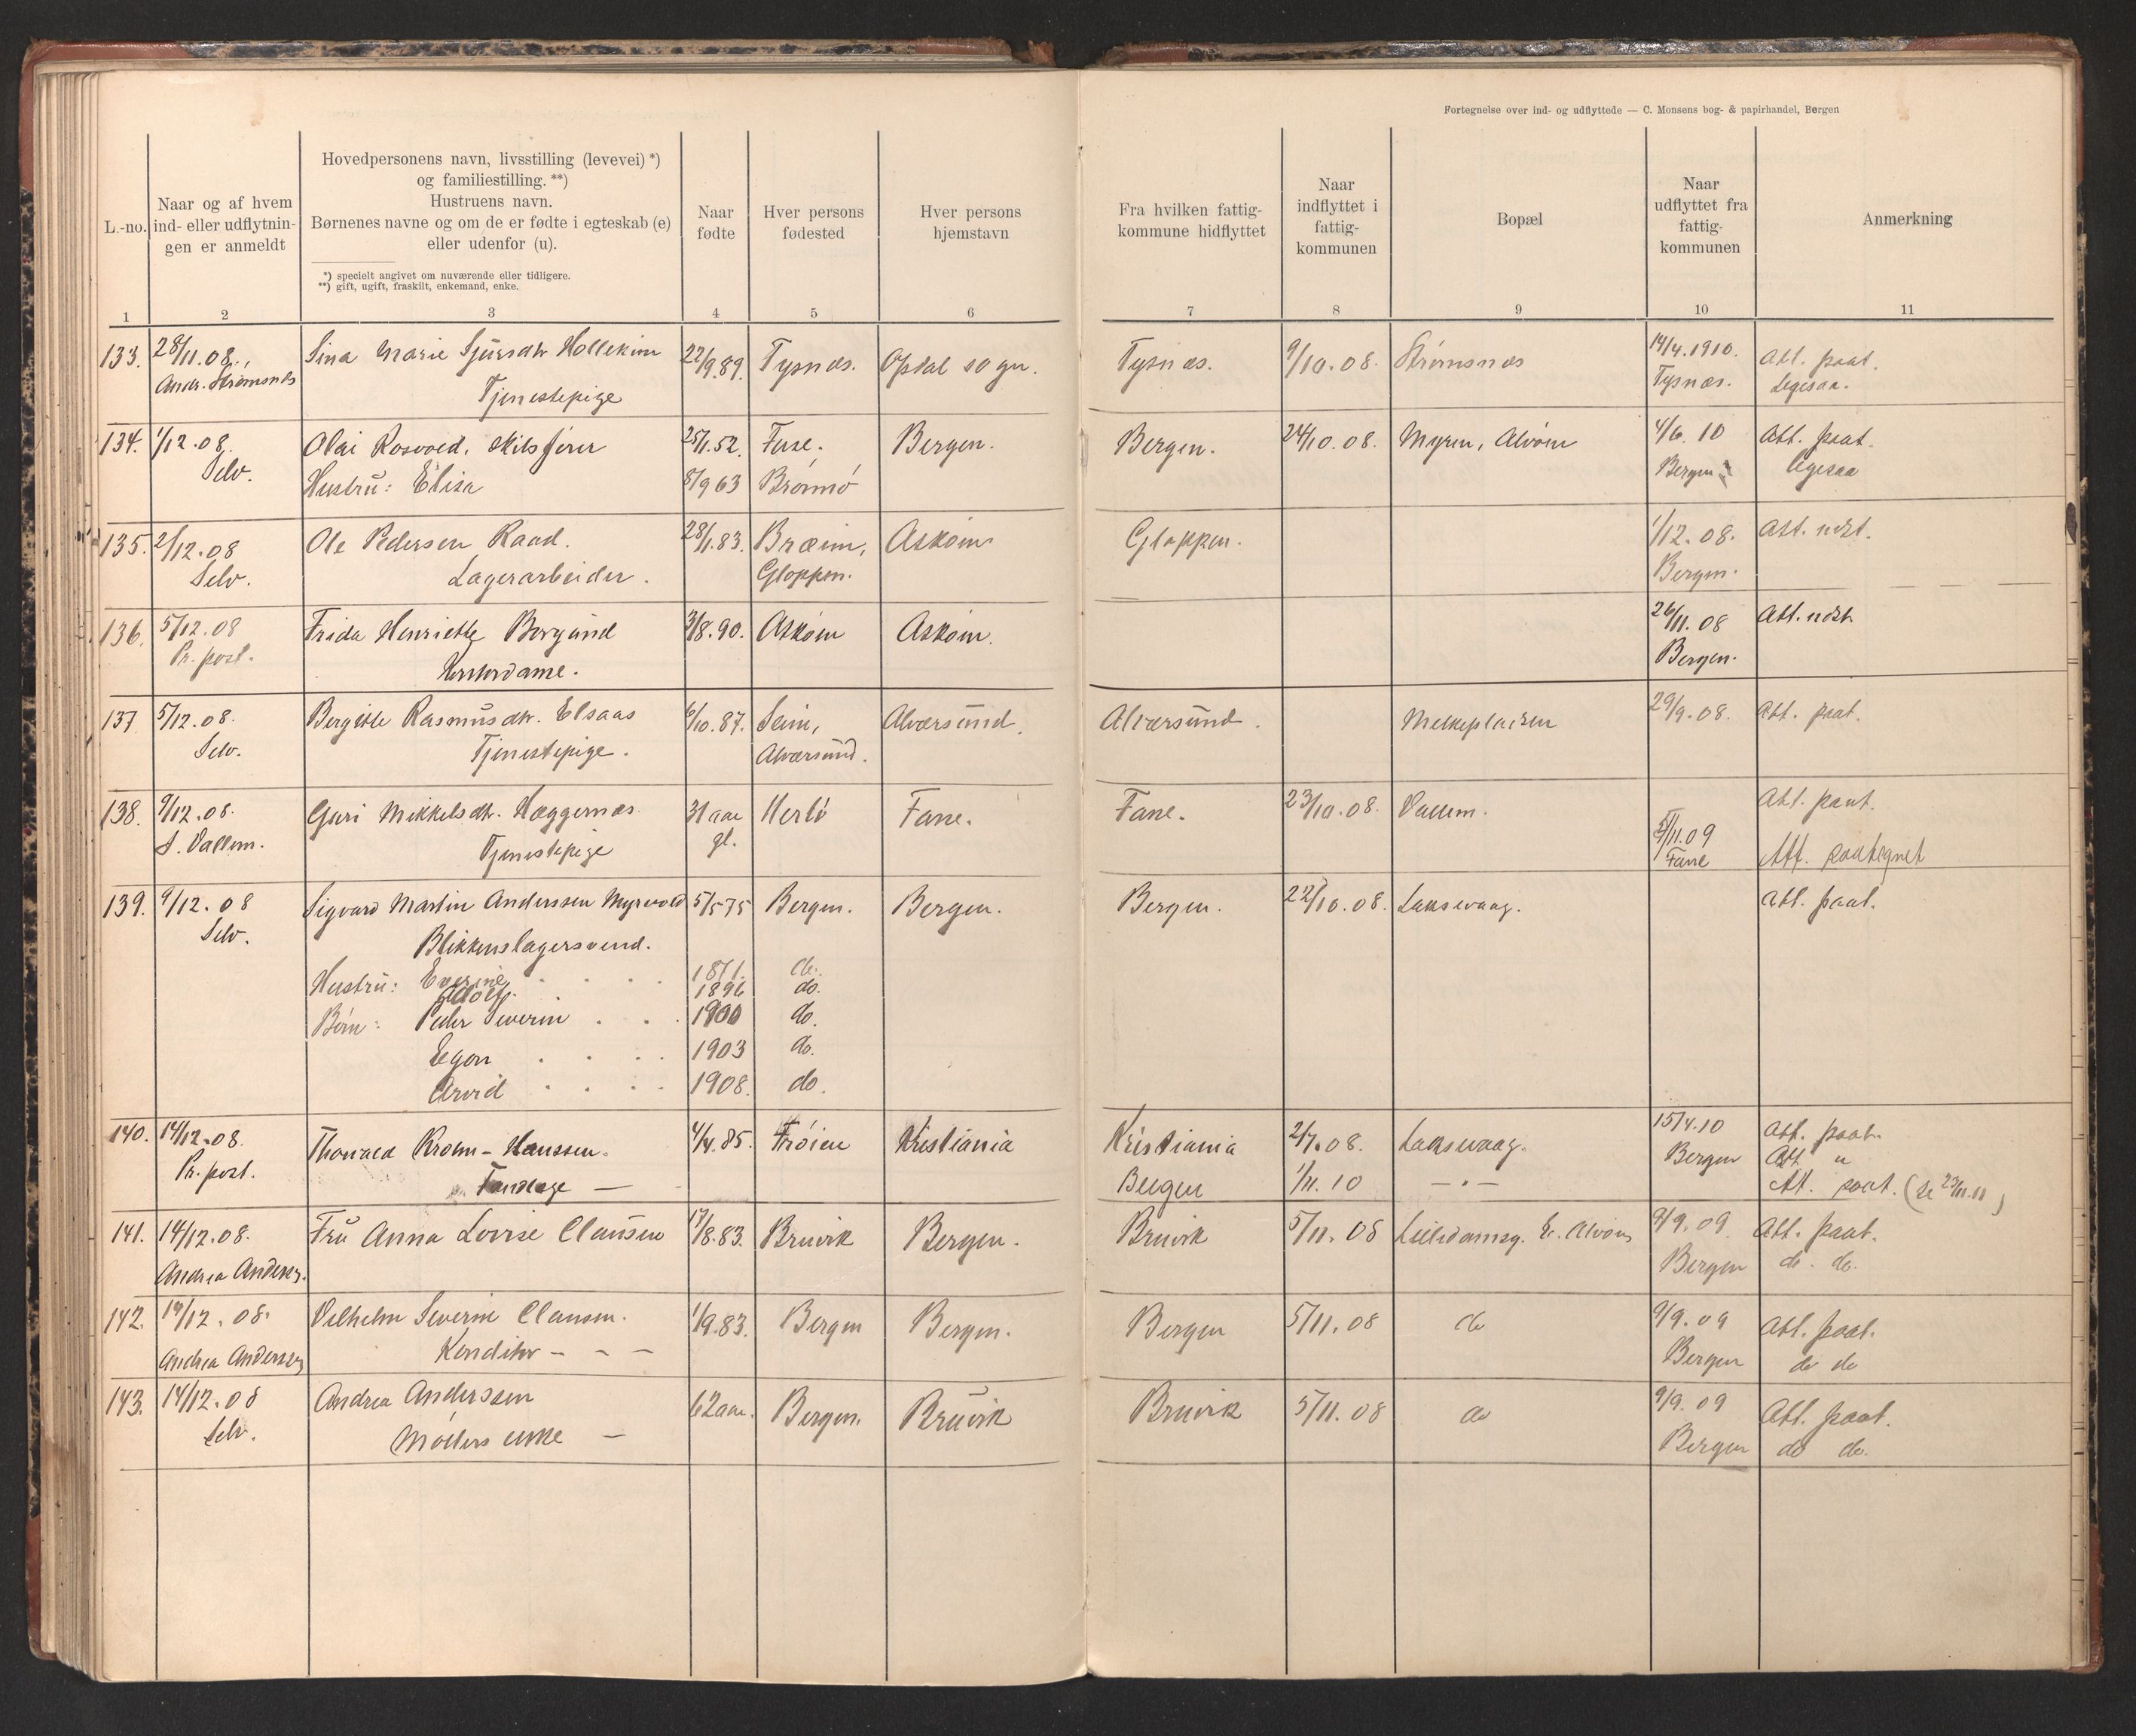 Fortegnelse over ind- og udflyttede — C. Monsens bog- & papirhandel, Bergen
L.-no.
Naar og af hvem
ind- eller udflytnin-
gen er anmeldt
Hovedpersonens navn, livsstilling (levevei) *)
og familiestilling. **)
Hustruens navn.
Børnenes navne og om de er fødte i egteskab (e)
eller udenfor (u).
*) specielt angivet om nuværende eller tidligere.
**) gift, ugift, fraskilt, enkemand, enke.
Naar
fødte
Hver persons
fødested
Hver persons
hjemstavn
Fra hvilken fattig-
kommune hidflyttet
Naar
indflyttet i
fattig-
kommunen
Bopæl
Naar
udflyttet fra
fattig-
kommunen
Anmerkning
1 2 3 4 5 6 7 8 9 10 11
133. 28/11.08., Sina Marie Sjursdtr Hollekim 22/9.89. Tysnæs. Opdal sogn. Tysnæs. 9/10.08. Strømsnæs 14/4.1910. Att. paat.
Andr. Strømsnæs Tjenestepige Tysnæs. Legesaa.
134. 1/12.08. Olai Rosvold, skibsfører 25/1.52. Fuse. Bergen. Bergen. 24/10.08. Myren, Alvøen 4/6.10 Att. paat.
Selv. Hustru: Elisa 8/9 63 Brønnø Bergen legesaa
135. 2/12.08 Ole Pedersen Raad. 28/1.83. Breim, Askøen Gloppen. 1/12.08. Att. udst.
Selv. Lagerarbeider. Gloppen. Bergen.
136. 5/12.08 Frida Henriette Berglund 3/8.90. Askøen Askøen. 26/11.08 Att. udst.
Pr. post. Kontordame. Bergen.
137 5/12.08. Bergitte Rasmusdtr. Elsaas 6/10.87. Seim, Alværsund. Alværsund. Melkepladsen 29/9.08. Att. paat.
Selv. Tjenestepige. Alværsund.
138. 9/12.08. Guri Mikkelsdtr. Hæggernæs 31 aar Herlø Fane. Fane. 23/10.08. Vallem. Att. paat.
S. Vallem. Tjenestepige gl. 5/11.09
Fane Att. paategnet
139. 9/12.08 Sigvard Martin Anderssen Myrvold 5/5 75 Bergen. Bergen. Bergen. 22/10.08. Laksevaag. Att. paat.
Selv. Blikkenslagersvend.
Hustru: Everine 1871. do.
Adolf. 1896 do.
Børn: Peder Severin 1900 do.
Egon 1903 do.
Arvid 1908. do.
140. 14/12.08. Thorvald Krohn-Hanssen. 4/4.85. Frøien Kristiania Kristiania 2/7.08. Laksevaag. 15/4.10 Att. paat.
Pr. post. Tandlæge — Bergen Att "
Bergen 1/11.10 —"— At. paat. (de 23/11.11)
141. 14/12.08. Fru Anna Lovise Clausen 17/8.83. Bruvik Bergen. Bruvik 5/11.08 9/9.09 Att. paat.
Andrea Anderss. Bergen do. do.
142. 14/12.08. Vilhelm Severin Clausen. 1/9.83. Bergen Bergen. Bergen 5/11.08 do 9/9.09 Att. paat.
Andrea Anderssen Konditor — — — Bergen do do
143. 14/12.08 Andrea Anderssen 62 aar. Bergen. Bruvik Bruvik 5/11.08 do 9/9.09 Att. paat.
Selv. Møllers enke — Bergen do do.